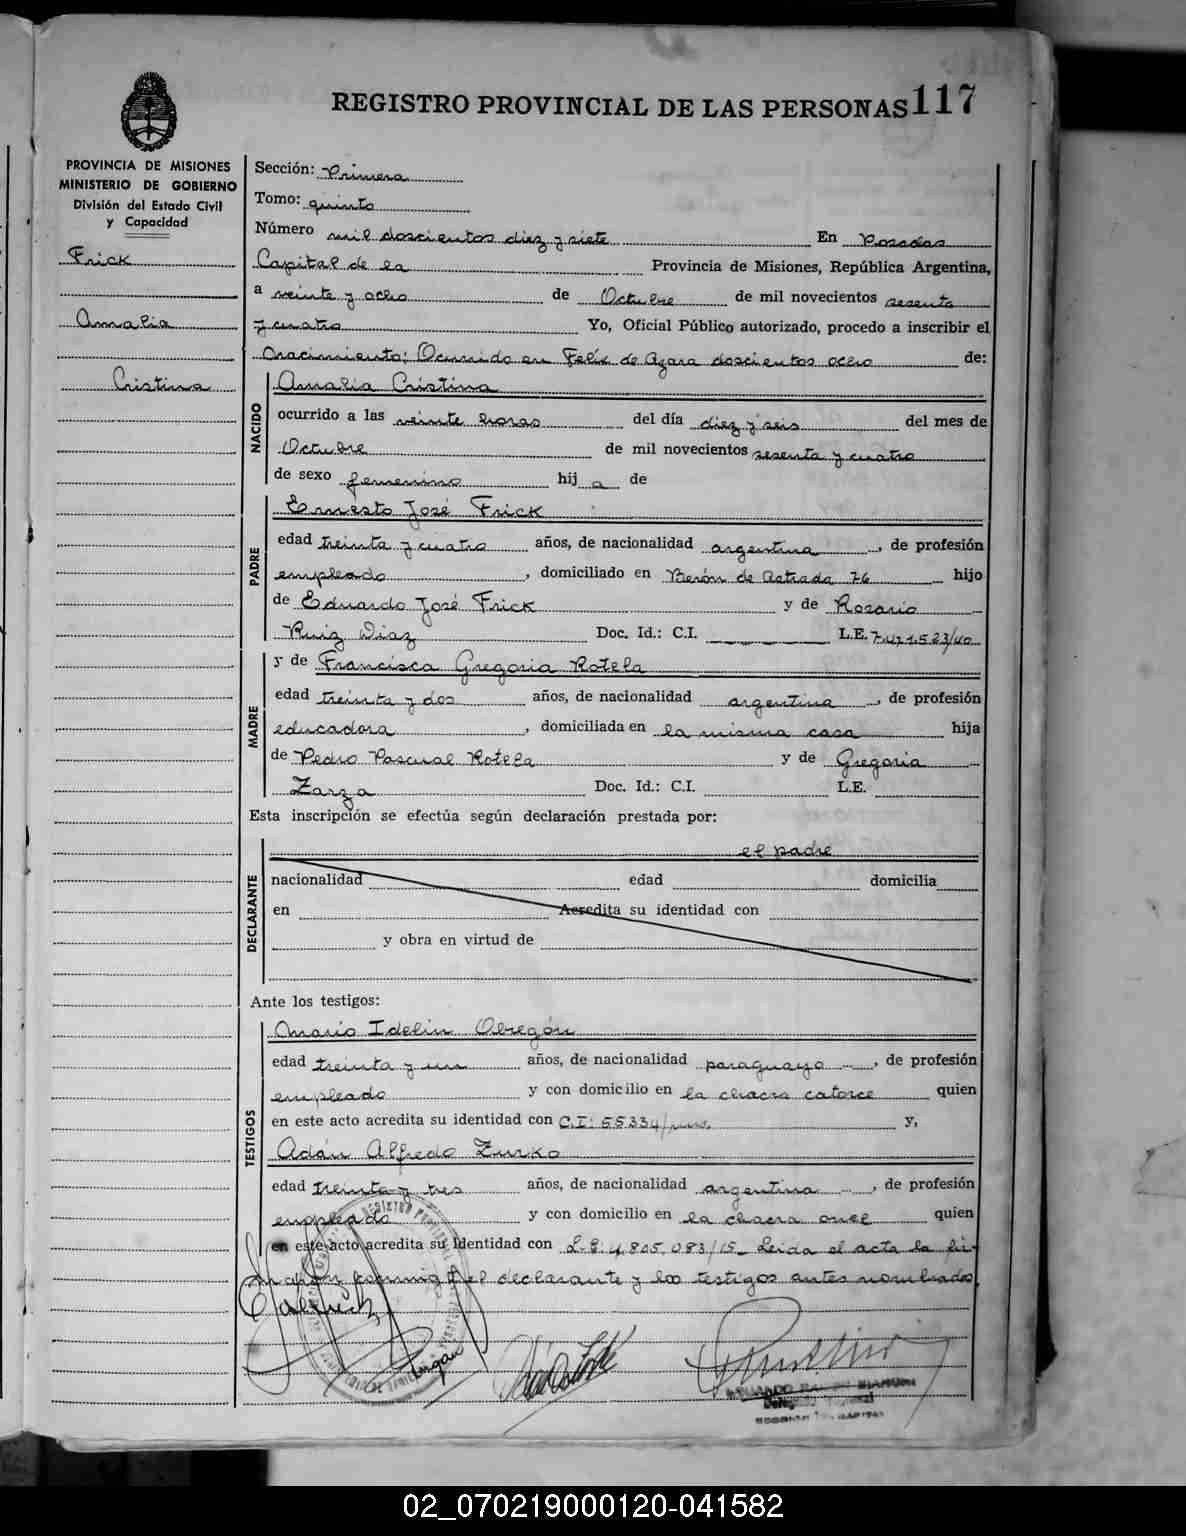 REGISTRO PROVINCIAL DE LAS PERSONAS 117
PROVINCIA DE MISIONES
MINISTERIO DE GOBIERNO
División del Estado Civil
y Capacidad
Frick
Amalia
Cristina
Sección: Primera
Tomo: quinto
Número mil doscientos diez y siete En Posadas
Capital de la Provincia de Misiones, República Argentina,
a veinte y ocho de Octubre de mil novecientos sesenta
y cuatro Yo, Oficial Público autorizado, procedo a inscribir el
nacimiento: Ocurrido en Felix de Azara doscientos ocho de:
NACIDO
Amalia Cristina
ocurrido a las veinte horas del día diez y seis del mes de
Octubre de mil novecientos sesenta y cuatro
de sexo femenino hij a de
PADRE
Ernesto José Frick
edad treinta y cuatro años, de nacionalidad argentina, de profesión
empleado, domiciliado en Berón de Astrada 76 hijo
de Eduardo José Frick y de Rosario
Ruiz Diaz Doc. Id.: C.I. L.E. 7.471.523/40
MADRE
y de Francisca Gregoria Rotela
edad treinta y dos años, de nacionalidad argentina, de profesión
educadora, domiciliada en la misma casa hija
de Pedro Pascual Rotela y de Gregoria
Zarza Doc. Id.: C.I. L.E.
Esta inscripción se efectúa según declaración prestada por:
DECLARANTE
el padre
nacionalidad edad domicilia
en Acredita su identidad con
y obra en virtud de
Ante los testigos:
TESTIGOS
Mario Idelin Obregón
edad treinta y un años, de nacionalidad paraguaya, de profesión
empleado y con domicilio en la chacra catorce quien
en este acto acredita su identidad con C.I: 55334/ y,
Adán Alfredo Zurko
edad treinta y tres años, de nacionalidad argentina, de profesión
empleado y con domicilio en la chacra once quien
en este acto acredita su identidad con L.E: 4.805.083/15_ Leida el acta la fir-
man conmigo el declarante y los testigos antes nombrados.
02_070219000120-041582